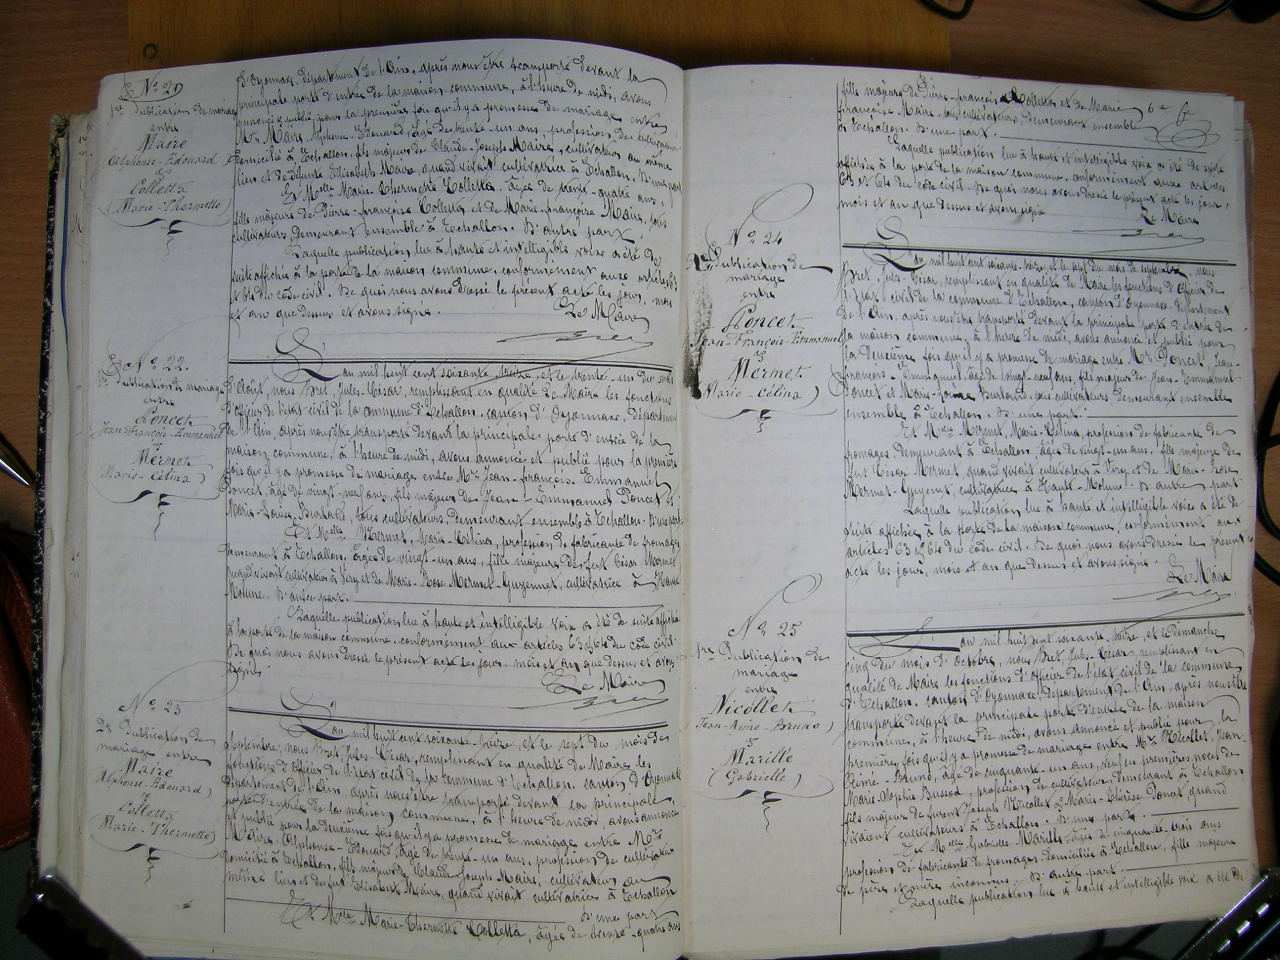 N° 21
1re Publication de mariage
entre
Maire
Alphonse-Edouard
et
Colletta
(Marie-Thermette)
d'Oyonnax, département de l'Ain, après nous être transporté devant la
principale porte d'entrée de la maison commune, à l'heure de midi, avons
annoncé et publié pour la première fois qu'il y a promesse de mariage entre
Mr Maire, Alphonse-Edouard, âgé de trente-un ans, profession de cultivateur
domicilié à Echallon, fils majeur de Claude-Joseph Maire, cultivateur au même
lieu et de défunte Elisabeth Maire, quand vivait cultivatrice à Echallon. D'une part
Et Melle Marie-Thermette Colletta, âgée de trente-quatre ans,
fille majeure de Pierre-françois Colletta et de Marie-françoise Maire, tous
cultivateurs, demeurant ensemble à Echallon. D'autre part.
Laquelle publication, lue à haute et intelligible voix a été de
suite affichée à la porte de la maison commune, conformément aux articles 63
et 64 du code civil. De quoi nous avons dressé le présent acte les jour, mois
et an que dessus et avons signé.
Le Maire
N° 22
1re Publication de mariage
entre
Poncet
Jean-François-Emmanuel
et
Mermet
(Marie-Célina)
L'an mil huit cent soixante-treize, et le trente-un du mois
d'Août, nous Bret, Jules-César, remplissant en qualité de Maire les fonctions
d'officier de l'état civil de la commune d'Echallon, canton d'Oyonnax, département
de l'Ain, après nous être transporté devant la principale porte d'entrée de la
maison commune, à l'heure de midi, avons annoncé et publié pour la première
fois qu'il y a promesse de mariage entre Mr Jean-françois-Emmanuel
Poncet, âgé de vingt-neuf ans, fils majeur de Jean-Emmanuel Poncet et
Marie-Louise Burtalod, tous cultivateurs, demeurant ensemble à Echallon. D'une part
Et Melle Mermet, Marie-Célina, profession de fabricante de fromages
demeurant à Echallon, âgée de vingt-un ans, fille majeure de feu César Mermet
quand vivait cultivateur à Viry et de Marie-Rose Mermet-Guyennet, cultivatrice à Haute
Molune. D'autre part.
Laquelle publication lue à haute et intelligible voix a été de suite affichée
à la porte de la maison commune, conformément aux articles 63 et 64 du code civil.
De quoi nous avons dressé le présent acte les jour, mois et an que dessus et avons
signé.
Le Maire
N° 23
2e Publication de
mariage entre
Maire
Alphonse-Edouard)
et
Colletta
(Marie-Thermette)
L'an mil huit cent soixante-treize, et le sept du mois de
septembre, nous Bret, Jules-César, remplissant en qualité de Maire les
fonctions d'officier de l'état civil de la commune d'Echallon, canton d'Oyonnax
département de l'Ain, après nous être transporté devant la principale
porte d'entrée de la maison commune, à l'heure de midi, avons annoncé
et publié pour la deuxième fois qu'il y a promesse de mariage entre Mr
Maire, Alphonse-Edouard, âgé de trente-un ans, profession de cultivateur
domicilié à Echallon, fils majeur de Claude-Joseph Maire, cultivateur au
même lieu et de feu Elisabeth Maire, quand vivait cultivatrice à Echallon
D'une part
Et Melle Marie-Thermette Colletta, âgée de trente-quatre ans
fille majeure de Pierre-françois Colletta et de Marie
françoise Maire, tous cultivateurs demeurant ensemble
à Echallon. D'une part.
6e f
Laquelle publication lue à haute et intelligible voix a été de suite
affichée à la porte de la maison commune, conformément aux articles
63 et 64 du code civil. De quoi nous avons dressé le présent acte les jour,
mois et an que dessus et avons signé
Le Maire
N° 24
2e Publication de
mariage
entre
Poncet
Jean-François-Emmanuel
et
Mermet
Marie-Célina)
L'an mil huit cent soixante-treize, et le sept du mois de septembre, nous
Bret, Jules-César, remplissant en qualité de Maire les fonctions d'officier de
l'état civil de la commune d'Echallon, canton d'Oyonnax, département
de l'Ain, après nous être transporté devant la principale porte d'entrée de
la maison commune, à l'heure de midi, avons annoncé et publié pour
la deuxième fois qu'il y a promesse de mariage entre Mr Poncet, Jean-
françois-Emmanuel, âgé de vingt-neuf ans, fils majeur de Jean-Emmanuel
Poncet et Marie-Louise Burtalod, cultivateurs demeurant ensemble
ensemble à Echallon. D'une part.
Et Melle Mermet, Marie-Célina, profession de fabricante de
fromages demeurant à Echallon, âgée de vingt-un ans, fille majeure de
feu César Mermet quand vivait cultivateur à Viry et de Marie-Rose
Mermet-Guyennet, cultivatrice à Haute-Molune. D'autre part.
Laquelle publication lue à haute et intelligible voix a été de
suite affichée à la porte de la maison commune, conformément aux
articles 63 et 64 du code civil. De quoi nous avons dressé le présent
acte les jour, mois et an que dessus et avons signé.
Le Maire
N° 25
1re Publication de
mariage
entre
Nicollet
Jean-Aimé-Bruno)
et
Marille
(Gabrielle)
L'an mil huit cent soixante-treize, et le Dimanche
cinq du mois d'Octobre, nous Bret, Jules-César remplissant en
qualité de Maire les fonctions d'officier de l'état civil de la commune
d'Echallon, canton d'Oyonnax, département de l'Ain, après nous être
transporté devant la principale porte d'entrée de la maison
commune, à l'heure de midi, avons annoncé et publié pour la
première fois qu'il y a promesse de mariage entre Mr Nicollet, Jean-
Aimé-Bruno, âgé de cinquante un ans, veuf en premières noces de
Marie-Sophie Bussod, profession de cultivateur demeurant à Echallon
fils majeur de furent Joseph Nicollet et Marie-Thérèse Poncet, quand
vivaient cultivateurs à Echallon. D'une part.
Et Melle Gabrielle Marille, âgée de cinquante-trois ans
profession de fabricante de fromages domiciliée à Echallon, fille majeure
de père et mère inconnus. D'autre part.
Laquelle publication lue à haute et intelligible voix a été de